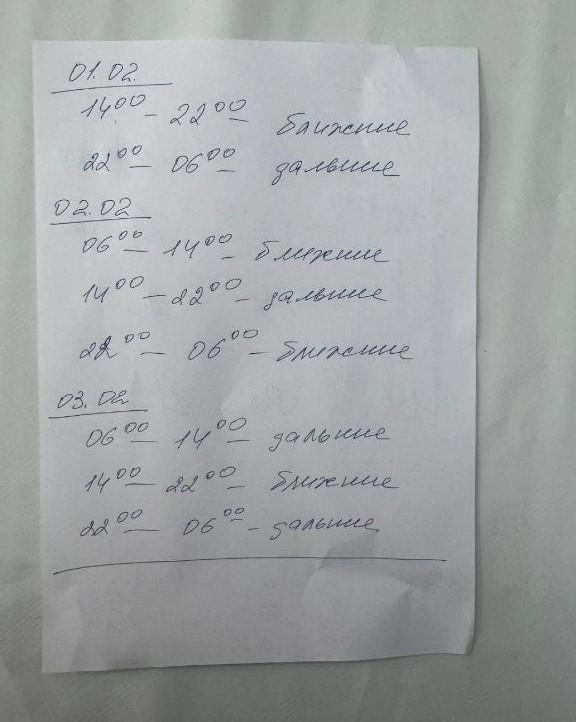 01.02.
14⁰⁰ – 22⁰⁰ ближние
22⁰⁰ – 06⁰⁰ – дальние
02.02
06⁰⁰ – 14⁰⁰ – ближние
14⁰⁰ – 22⁰⁰ – дальние
22⁰⁰ – 06⁰⁰ – ближние
03.02
06⁰⁰ – 14⁰⁰ – дальние
14⁰⁰ – 22⁰⁰ – ближние
22⁰⁰ – 06⁰⁰ – дальние